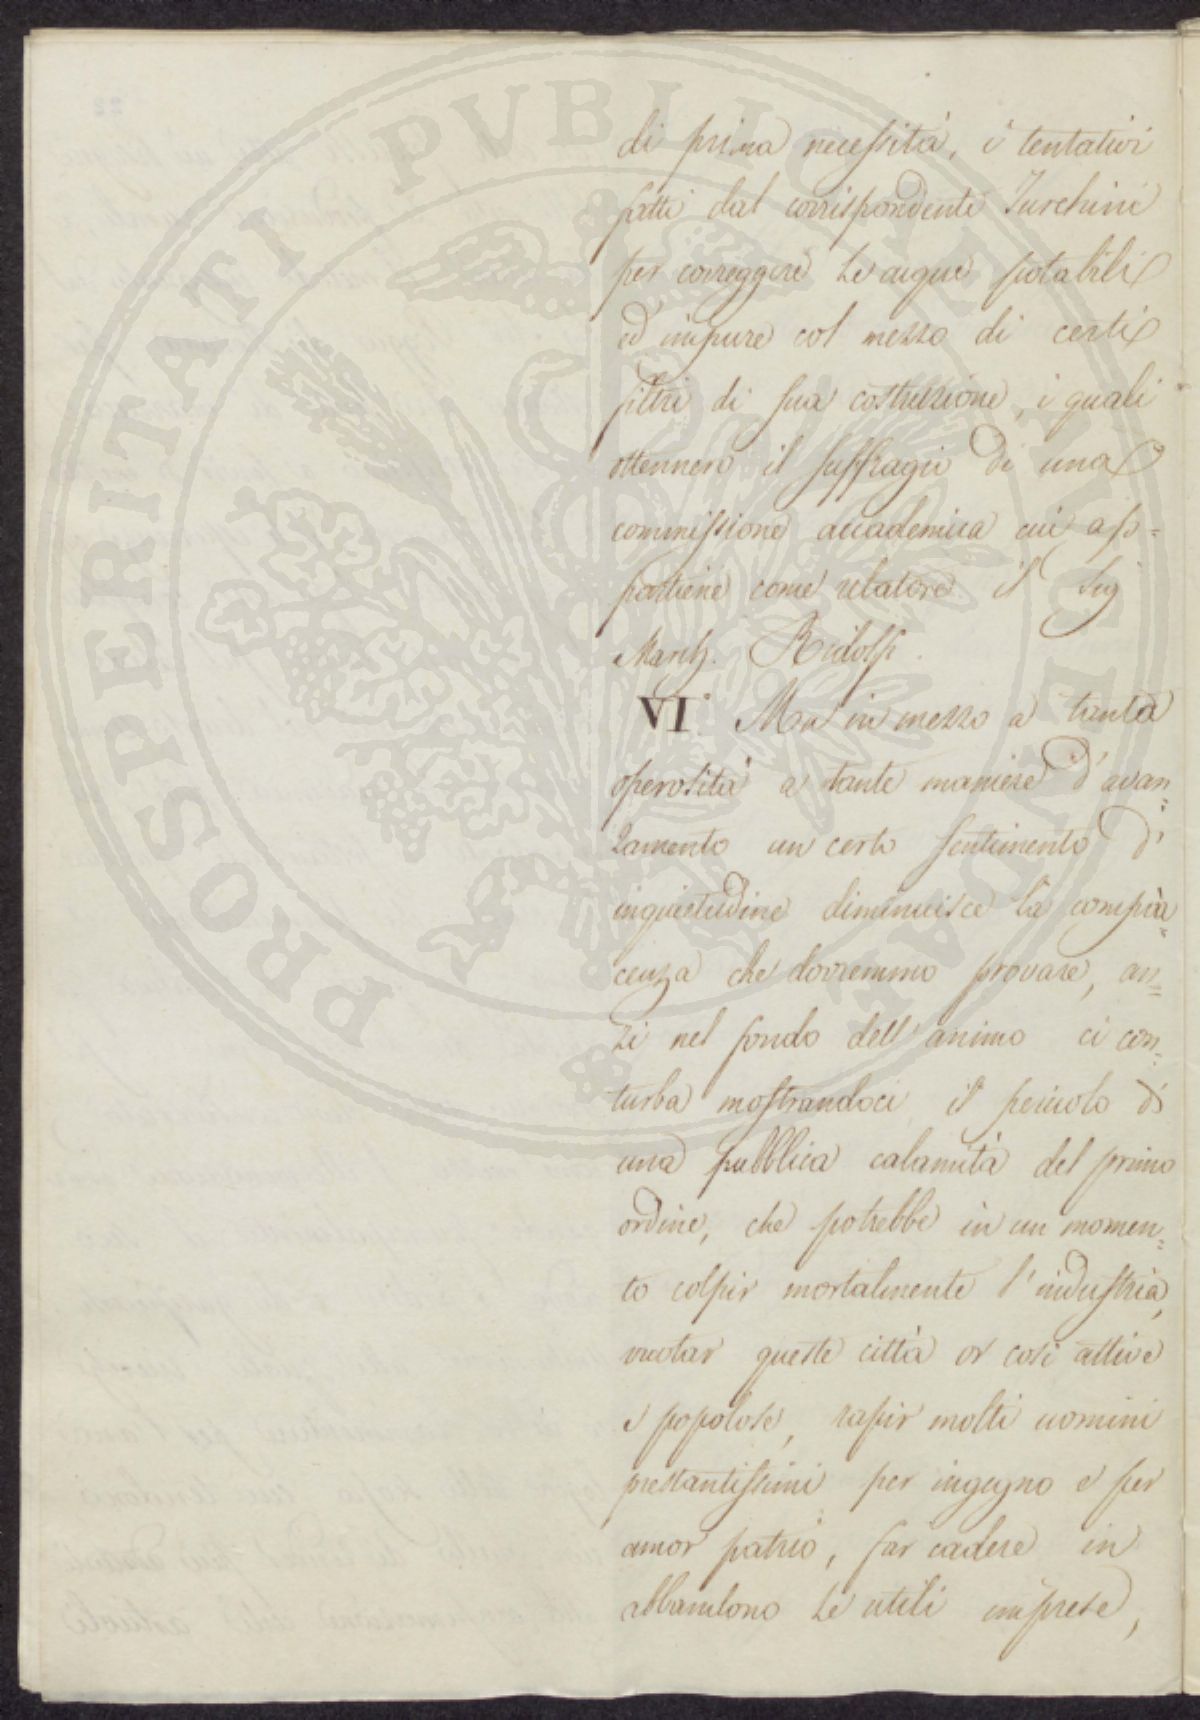 PROSPERITATI PVBLICAE AVGENDAE
di prima necessità, i tentativi
fatti dal corrispondente Turchini
per correggere le acque potabili
ed impure col mezzo di certi
filtri di sua costruzione, i quali
ottennero il suffragio di una
commissione accademica cui ap=
partiene come relatore il Sig
March. Ridolfi.
VI.° Ma in mezzo a tanta
operosità a tante maniere d'avan=
zamento un certo sentimento d'
inquietudine diminuisce la compia=
cenza che dovremmo provare, an=
zi nel fondo dell'animo ci con=
turba mostrandoci il pericolo di
una pubblica calamità del primo
ordine, che potrebbe in un momen=
to colpir mortalmente l'industria,
vuotar queste città or così attive
e popolose, rapir molti uomini
prestantissimi per ingegno e per
amor patrio, far cadere in
abbandono le utili imprese,